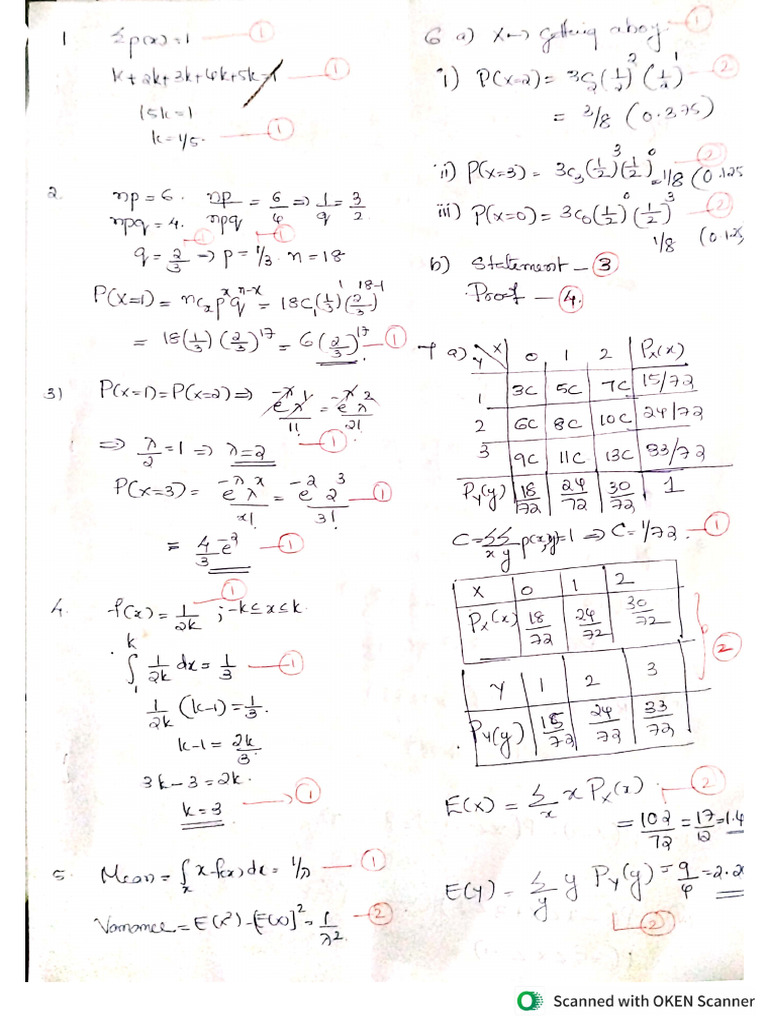 1 Σp(x)=1 — ①
k+2k+3k+4k+5k=1 — ①
15k=1
k=1/5. — ①
2. np=6. np/npq = 6/4 ⇒ 1/q = 3/2
npq=4.
q=2/3 → p=1/3. n=18 ① ①
P(X=1) = nCx p^x q^(n-x) = 18C1 (1/3)^1 (2/3)^(18-1)
= 18(1/3)(2/3)^17 = 6(2/3)^17 — ①
3) P(X=1)=P(X=2) ⇒ e^-λ λ^1/1! = e^-λ λ^2/2!
⇒ λ/2=1 ⇒ λ=2 — ①
P(X=3) = e^-λ λ^x/x! = e^-2 2^3/3! — ①
= 4/3 e^-2 — ①
4. f(x)=1/2k ; -k≤x≤k. — ①
∫_1^k 1/2k dx = 1/3 — ①
1/2k (k-1)=1/3.
k-1=2k/3.
3k-3=2k.
k=3 → ①
5. Mean = ∫_x x f(x) dx = 1/λ — ①
Variance = E(X²)-[E(X)]² = 1/λ². — ②
6 a) X→ Getting a boy. — ①
i) P(X=2) = 3C2 (1/2)^2 (1/2)^1 — ②
= 3/8 (0.375)
ii) P(X=3) = 3C3 (1/2)^3 (1/2)^0 = 1/8 (0.125 — ②
iii) P(X=0) = 3C0 (1/2)^0 (1/2)^3 — ②
1/8 (0.12
b) Statement — ③
Proof — ④.
7 a) Y X 0 1 2 Px(x)
1 3C 5C 7C 15/72
2 6C 8C 10C 24/72
3 9C 11C 13C 33/72
Py(y) 18/72 24/72 30/72 1
C = ΣΣ_xy p(x,y)=1 ⇒ C=1/72. — ①
X 0 1 2
Px(x) 18/72 24/72 30/72
②
Y 1 2 3
Py(y) 15/72 24/72 33/72
E(X) = Σ_x x Px(x) — ②
= 102/72 = 17/12 = 1.4
E(Y) = Σ_y y Py(y) = 9/4 = 2.2
②
Scanned with OKEN Scanner